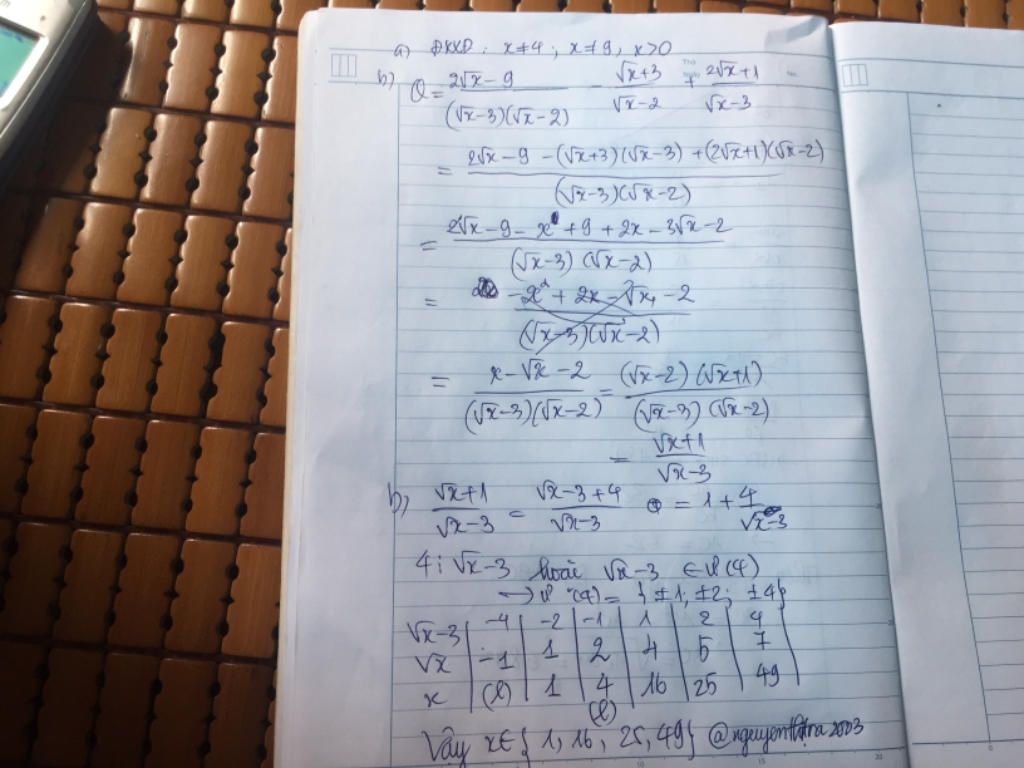 a) ĐKXĐ: x≠4; x≠9, x>0
b) Q = (2√x - 9)/((√x-3)(√x-2)) - (√x+3)/(√x-2) + (2√x+1)/(√x-3)
= (2√x - 9 - (√x+3)(√x-3) + (2√x+1)(√x-2))/((√x-3)(√x-2))
= (2√x - 9 - x + 9 + 2x - 3√x - 2)/((√x-3)(√x-2))
= (-x² + 2x - √x - 2)/((√x-3)(√x-2))
= (x - √x - 2)/((√x-3)(√x-2)) = ((√x-2)(√x+1))/((√x-3)(√x-2))
= (√x+1)/(√x-3)
b) (√x+1)/(√x-3) = (√x-3+4)/(√x-3) = 1 + 4/(√x-3)
4 ⋮ √x-3 hoặc √x-3 ∈ Ư(4)
→ Ư(4) = {±1; ±2; ±4}
√x-3 | -4 | -2 | -1 | 1 | 2 | 4
√x | -1 | 1 | 2 | 4 | 5 | 7
x | (l) | 1 | 4 (l) | 16 | 25 | 49
Vậy x∈{1, 16, 25, 49}